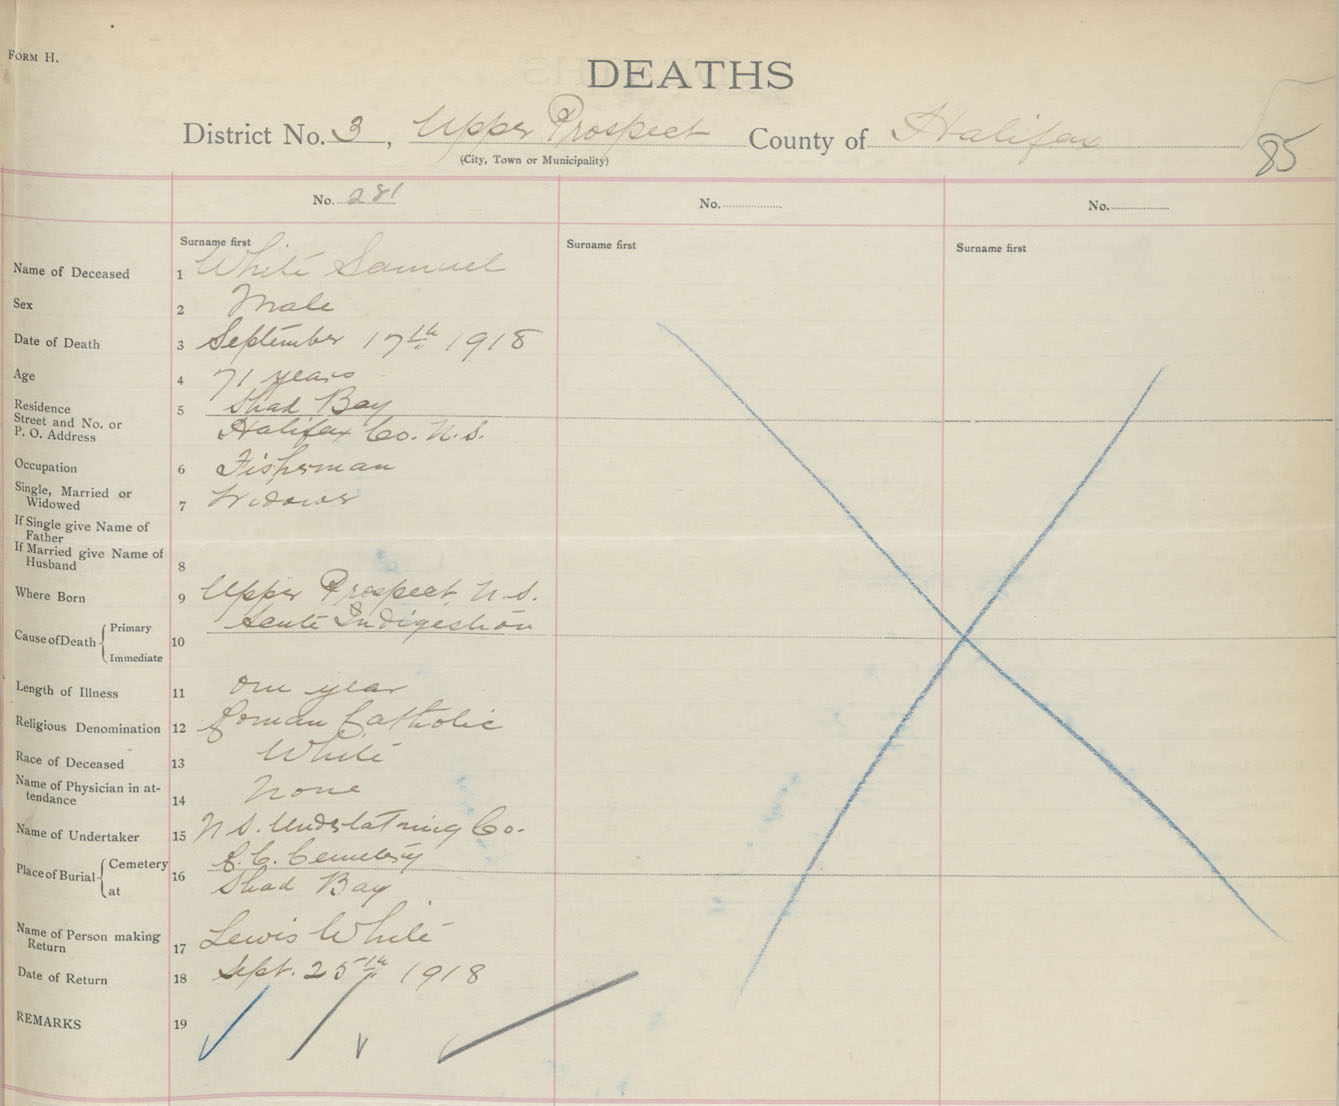 FORM H.
DEATHS
District No. 3, Upper Prospect County of Halifax
(City, Town or Municipality)
85
No. 281
No.
No.
Surname first
Surname first
Surname first
Name of Deceased 1 White Samuel
Sex 2 Male
Date of Death 3 September 17th 1918
Age 4 71 years
Residence
Street and No. or
P. O. Address 5 Shad Bay
Halifax Co. N.S.
Occupation 6 Fisherman
Single, Married or
Widowed 7 Widower
If Single give Name of
Father
If Married give Name of
Husband 8
Where Born 9 Upper Prospect N.S.
Cause of Death Primary 10 Acute Indigestion
Immediate
Length of Illness 11 One year
Religious Denomination 12 Roman Catholic
Race of Deceased 13 White
Name of Physician in at-
tendance 14 None
Name of Undertaker 15 N.S. Undertaking Co.
Place of Burial Cemetery 16 R.C. Cemetery
at Shad Bay
Name of Person making
Return 17 Lewis White
Date of Return 18 Sept. 25th 1918
REMARKS 19